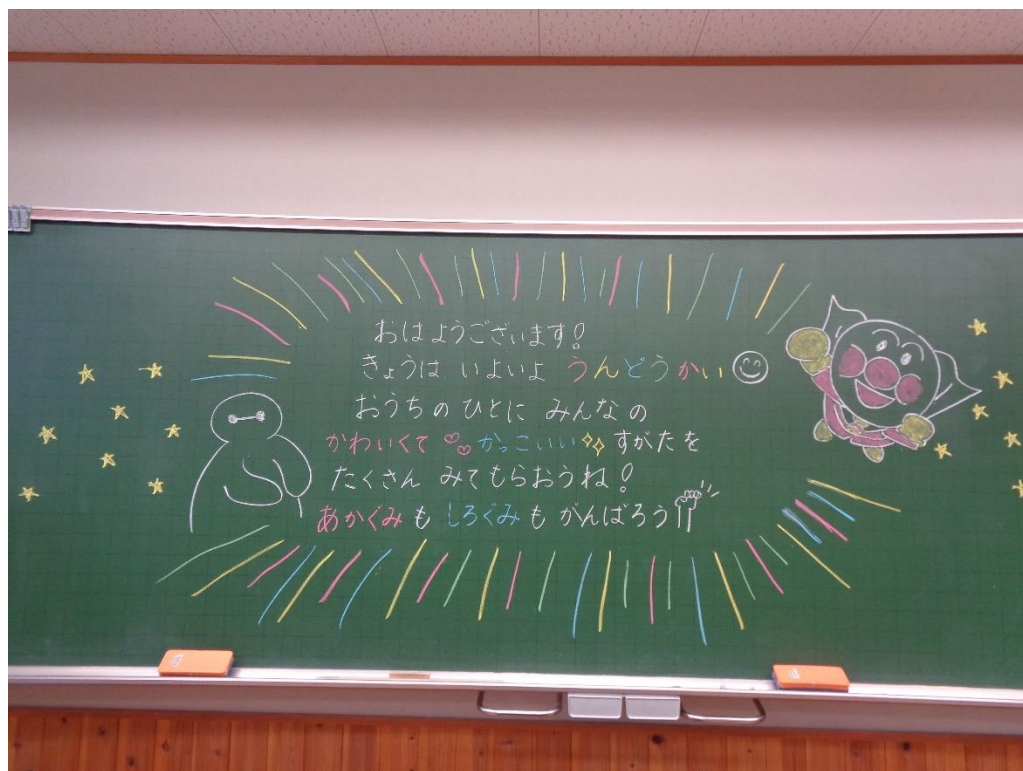 おはようございます!
きょうは いよいよ うんどうかい
おうちのひとに みんなの
かわいくて かっこいい すがたを
たくさん みてもらおうね!
あかぐみも しろぐみも がんばろう